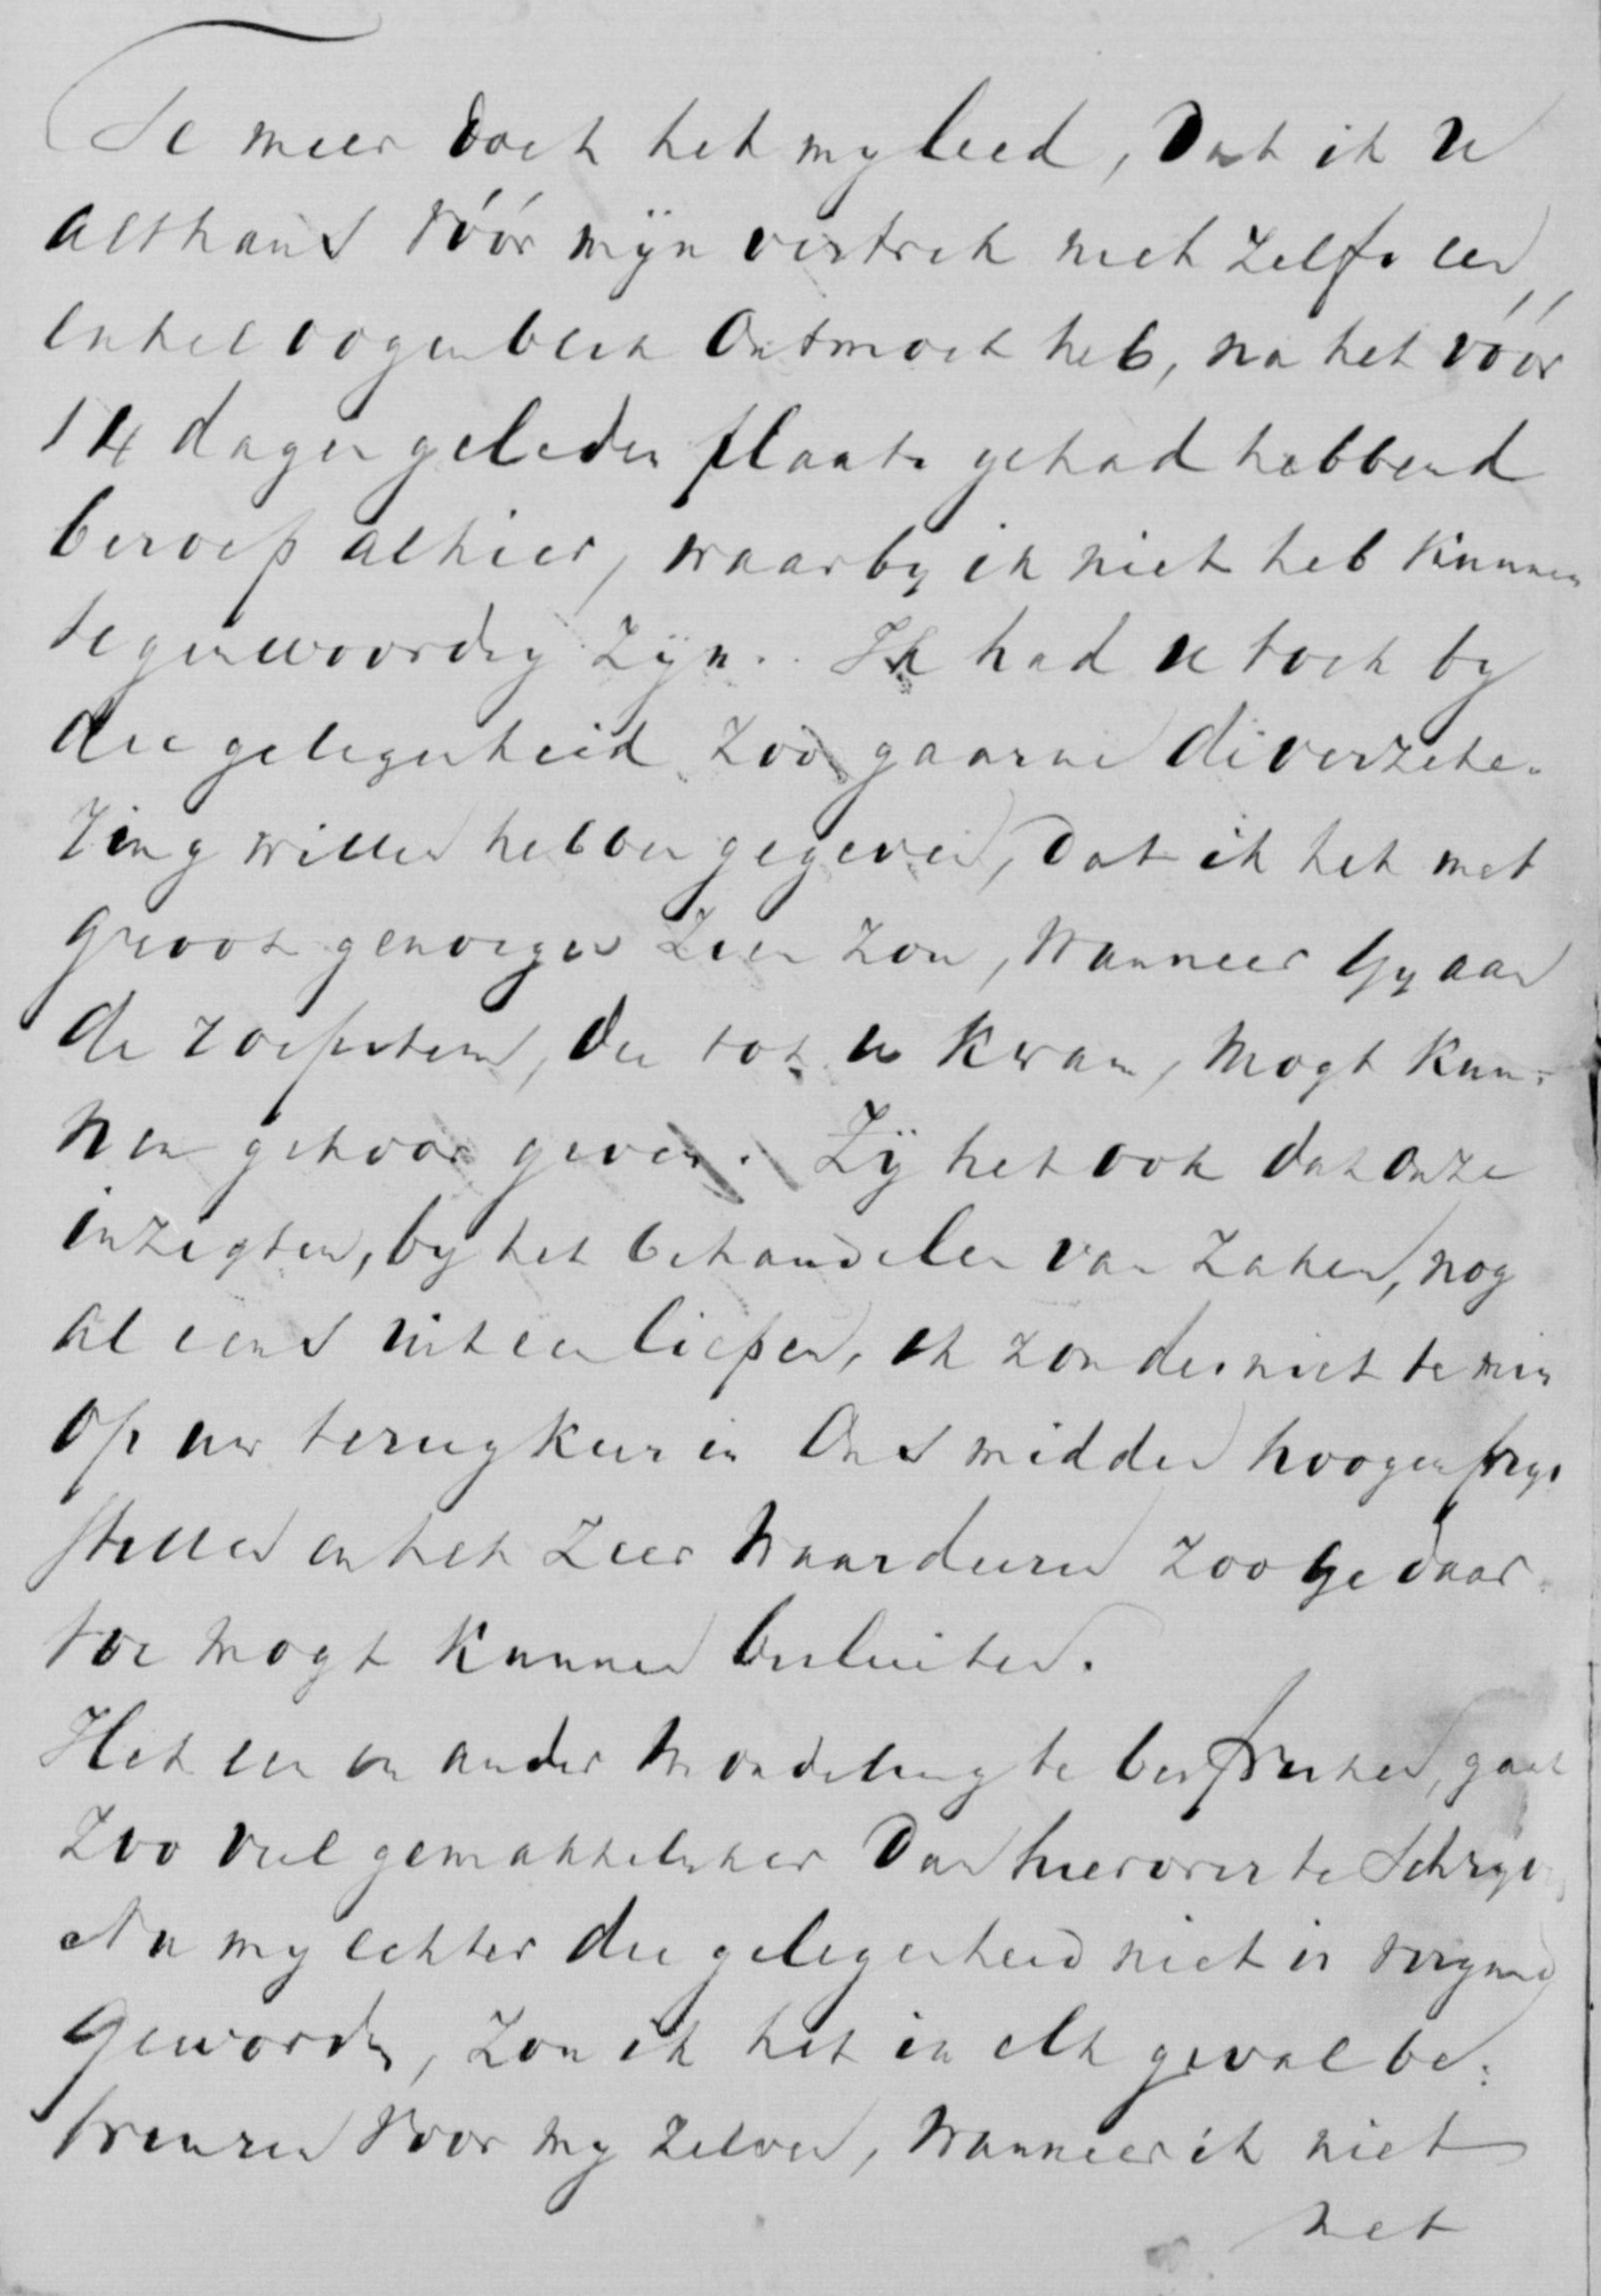 Te meer doet het my leed, dat ik U
althans vóór mijn vertrek niet zelfs een
enkel oogenblik ontmoet heb, na het vóór
14 dagen geleden plaats gehad hebbend
beroep alhier, waarby ik niet heb kunnen
tegenwoordig zijn. Ik had u toch by
die gelegenheid zoo gaarne de verzeke-
ring willen hebben gegeven, dat ik het met
groot genoegen zien zou, wanneer Gy aan
de roepstem, die tot u kwam, mogt kun-
nen gehoor geven. Zij het ook dat onze
inzigten, by het behandelen van zaken, nog
al eens uiteen liepen, ik zou des niet te min
op uw terugkeer in ons midden hoogen prys
stellen en het zeer waarderen zoo Ge daar-
toe mogt kunnen besluiten.
Het een en ander mondeling te bespreken, gaat
zoo veel gemakkelyker dan hierover te schryven,
Nu my echter die gelegenheid niet is vergund
geworden, zou ik het in elk geval be-
treuren voor my zelven, wanneer ik niet
het